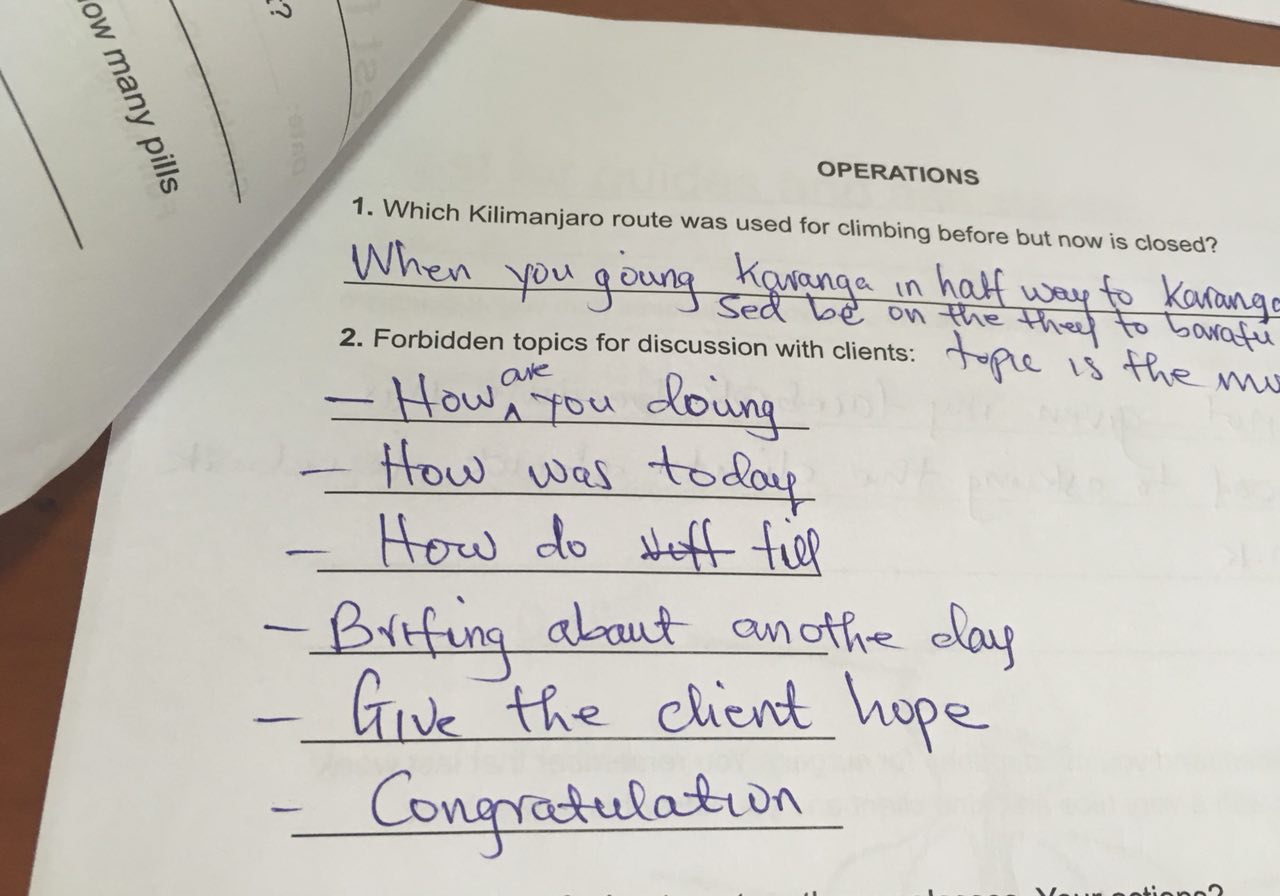 t?
ow many pills
OPERATIONS
1. Which Kilimanjaro route was used for climbing before but now is closed?
When you gioung Karanga in half way to Karanga
Sed be on the theef to barafu
2. Forbidden topics for discussion with clients:
topic is the
— How are you doing
— How was today
— How do till
— Brifing abaut anothe day
— Give the client hope
- Congratulation